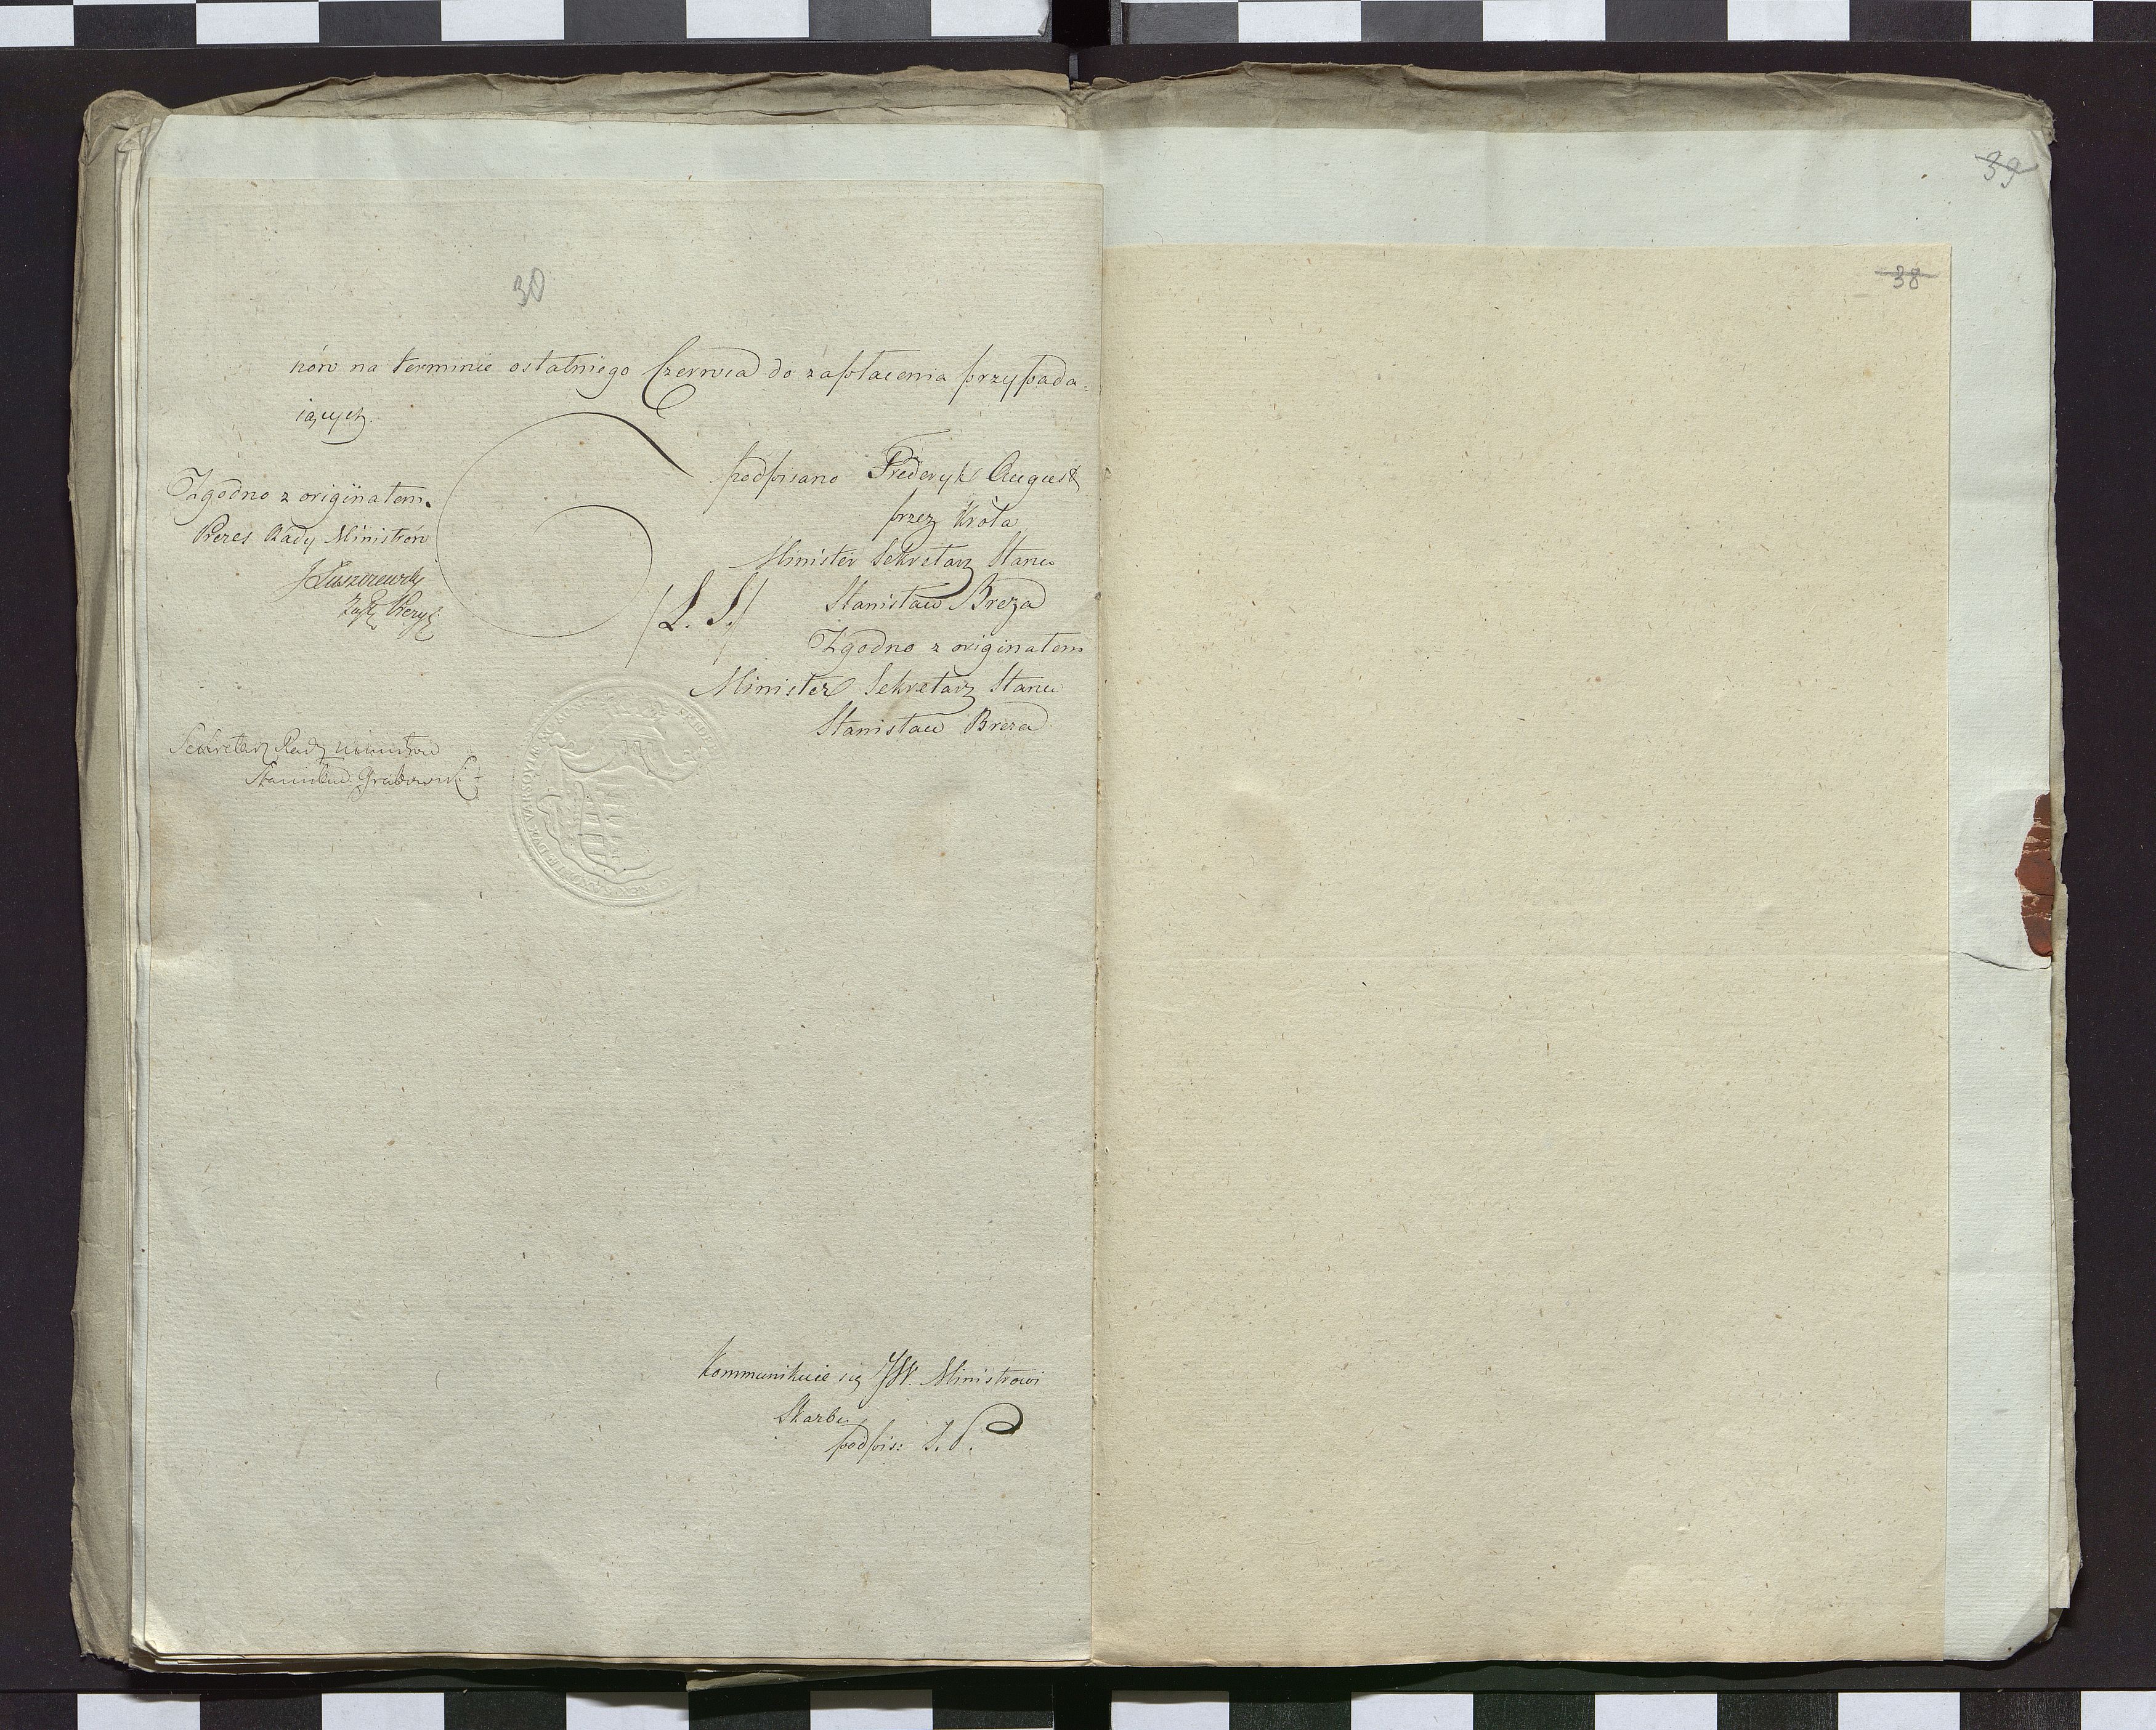 30
nów na terminie ostatniego Czerwca do zapłacenia przypada-
iących.
podpisano Frederyk August
przez Króla
Minister Sekretarz Stanu
/L. S./ Stanisław Breza
Zgodno z originałem
Minister Sekretarz Stanu
Stanisław Breza
Zgodno z originałem.
Prezes Rady Ministrów
J Łuszczewski
Sekretarz Rady Ministrów
Stanisław Grabowski
Kommunikuie się JW. Ministrowi
Skarbu,
podpis:
39
38